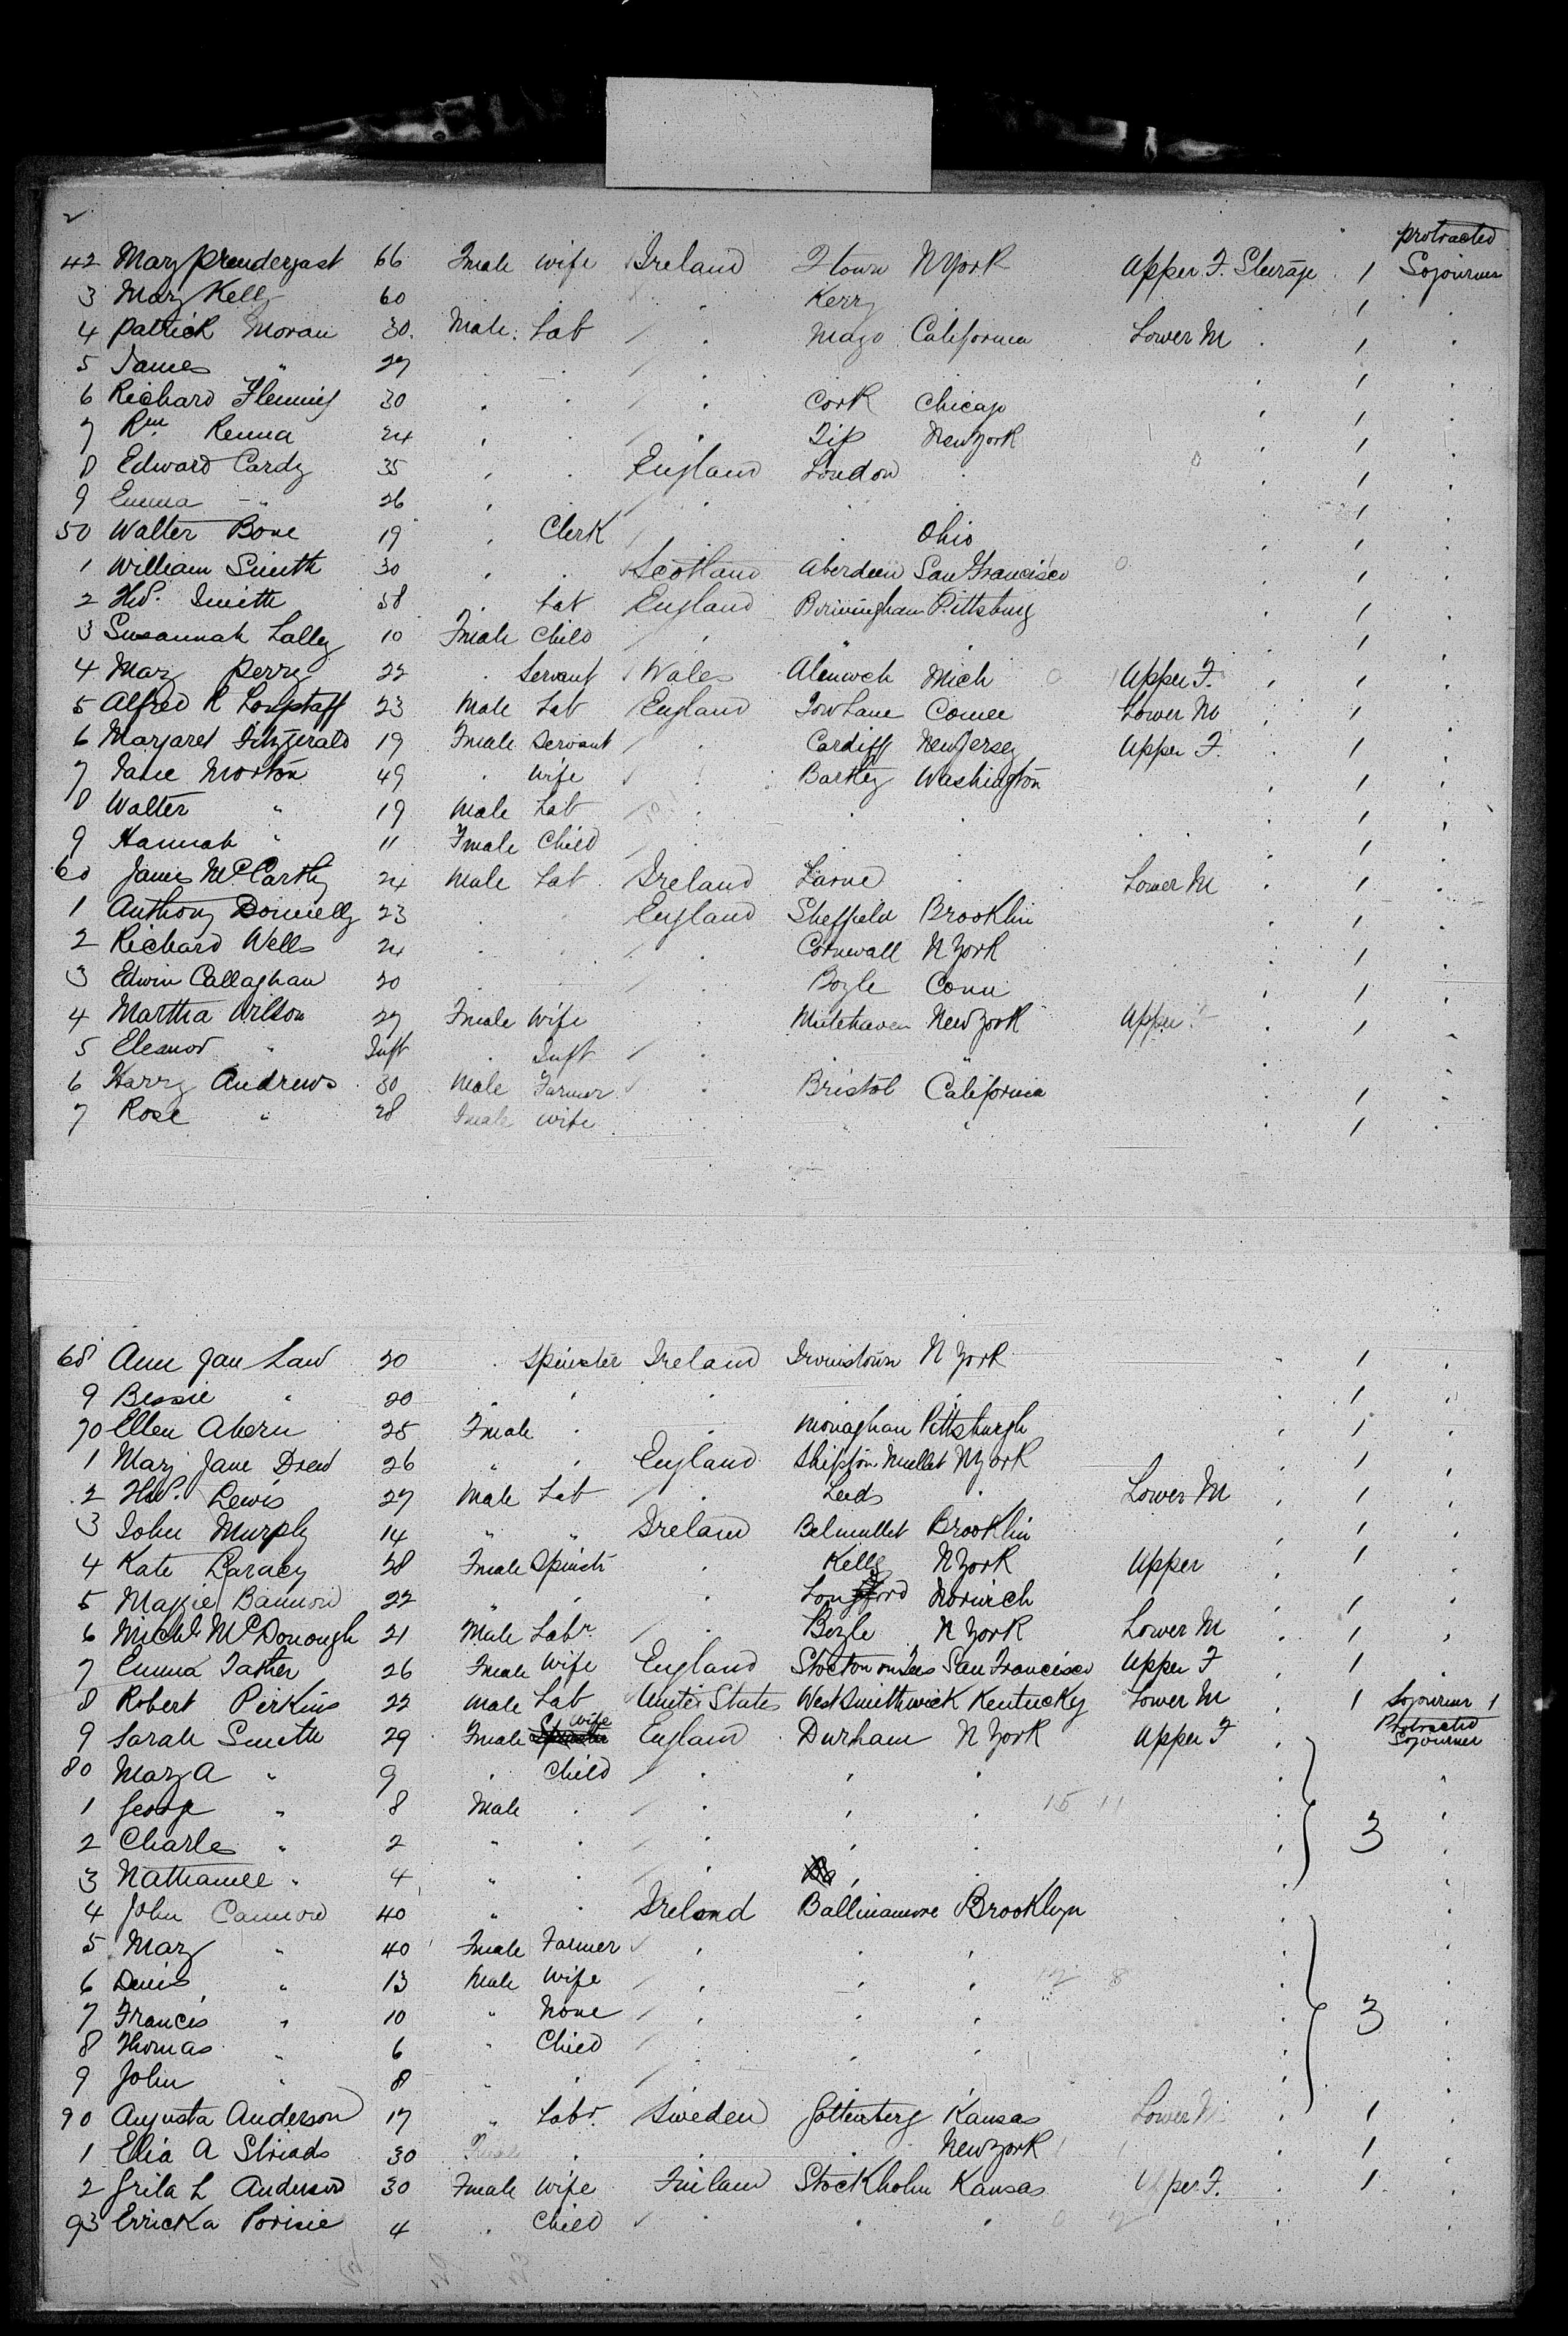 2
protracted
42 Mary Prendergast 66 Fmale Wife Ireland Qtown NYork Upper F. Steerage 1 Sojourner
3 Mary Kelly 60 Kerry 1
4 Patrick Moran 30. Male. Lab Mayo California Lower M 1
5 James " 27 1
6 Richard Fleming 30 Cork Chicago 1
7 Renna 24 Tip New York 1
8 Edward Cardy 35 England London 1
9 Emma " 26 1
50 Walter Bone 19 Clerk Ohio 1
1 William Smith 30 Scotland Aberdeen San Francisco 1
2 Smith 58 Lab England Birmingham Pittsburg 1
3 Susannah Lally 10 Fmale Child " 1
4 Mary Perry 22 Servant Wales Mich Upper F. 1
5 Alfred R Longstaff 23 Male Lab England Lower M 1
6 Margaret Fitzgerald 19 Fmale Servant Cardiff New Jersey Upper F. 1
7 Jane Morton 49 Wife Washington 1
8 Walter " 19 Male Lab 1
9 Hannah " 11 Fmale Child 1
60 James McCarthy 24 Male Lab Ireland Larne Lower M 1
1 Anthony Donnelly 23 England Sheffield Brooklin 1
2 Richard Wells 24 Cornwall N York 1
3 Edwin Callaghan 20 Boyle Conn 1
4 Martha Wilson 27 Fmale Wife New York Upper F 1
5 Eleanor " Inft Inft "
6 Harry Andrews 30 Male Farmer Bristol California 1
7 Rose " 28 Fmale Wife " " 1
68 Ann Jan Law 20 Spinster Ireland Irvinstown N York 1
9 Bessie " 20 1
70 Ellen Ahern 25 Fmale Monaghan Pittsburgh 1
1 Mary Jane Drew 26 " England Shipton Mullet N York 1
2 Lewis 27 Male Lab Leeds Lower M 1
3 John Murphy 14 " " Ireland Belmullet Brooklin 1
4 Kate 28 Fmale Spinstr Kelly N York Upper 1
5 Maggie Bannon 22 " Longford Norwich 1
6 Michl McDonough 21 Male Labr. Boyle N York Lower M 1
7 Emma 26 Fmale Wife England Stocton on Tees San Francisco Upper F 1
8 Robert Perkins 22 Male Lab United States West Smithwick Kentucky Lower M 1 Sojourner 1
9 Sarah Smith 29 Fmale Wife England Durham N York Upper F Protracted Sojourner
80 Mary A " 9 Child
1 George " 8 Male 15 11
2 Charles " 2 " 3
3 Nathaniel " 4 "
4 John Cannon 40 " Ireland Ballinamore Brooklyn
5 Mary " 40 Fmale Farmer
6 Denis " 13 Male Wife
7 Francis " 10 " None 3
8 Thomas " 6 " Child
9 John " 8 "
90 Augusta Anderson 17 " Labr. Sweden Gottenberg Kansas Lower M 1
1 Elia A 30 Fmale New York 1
2 Grita L Anderson 30 Fmale Wife Finland Stockholm Kansas Upper F. 1
93 Ericka 4 Child